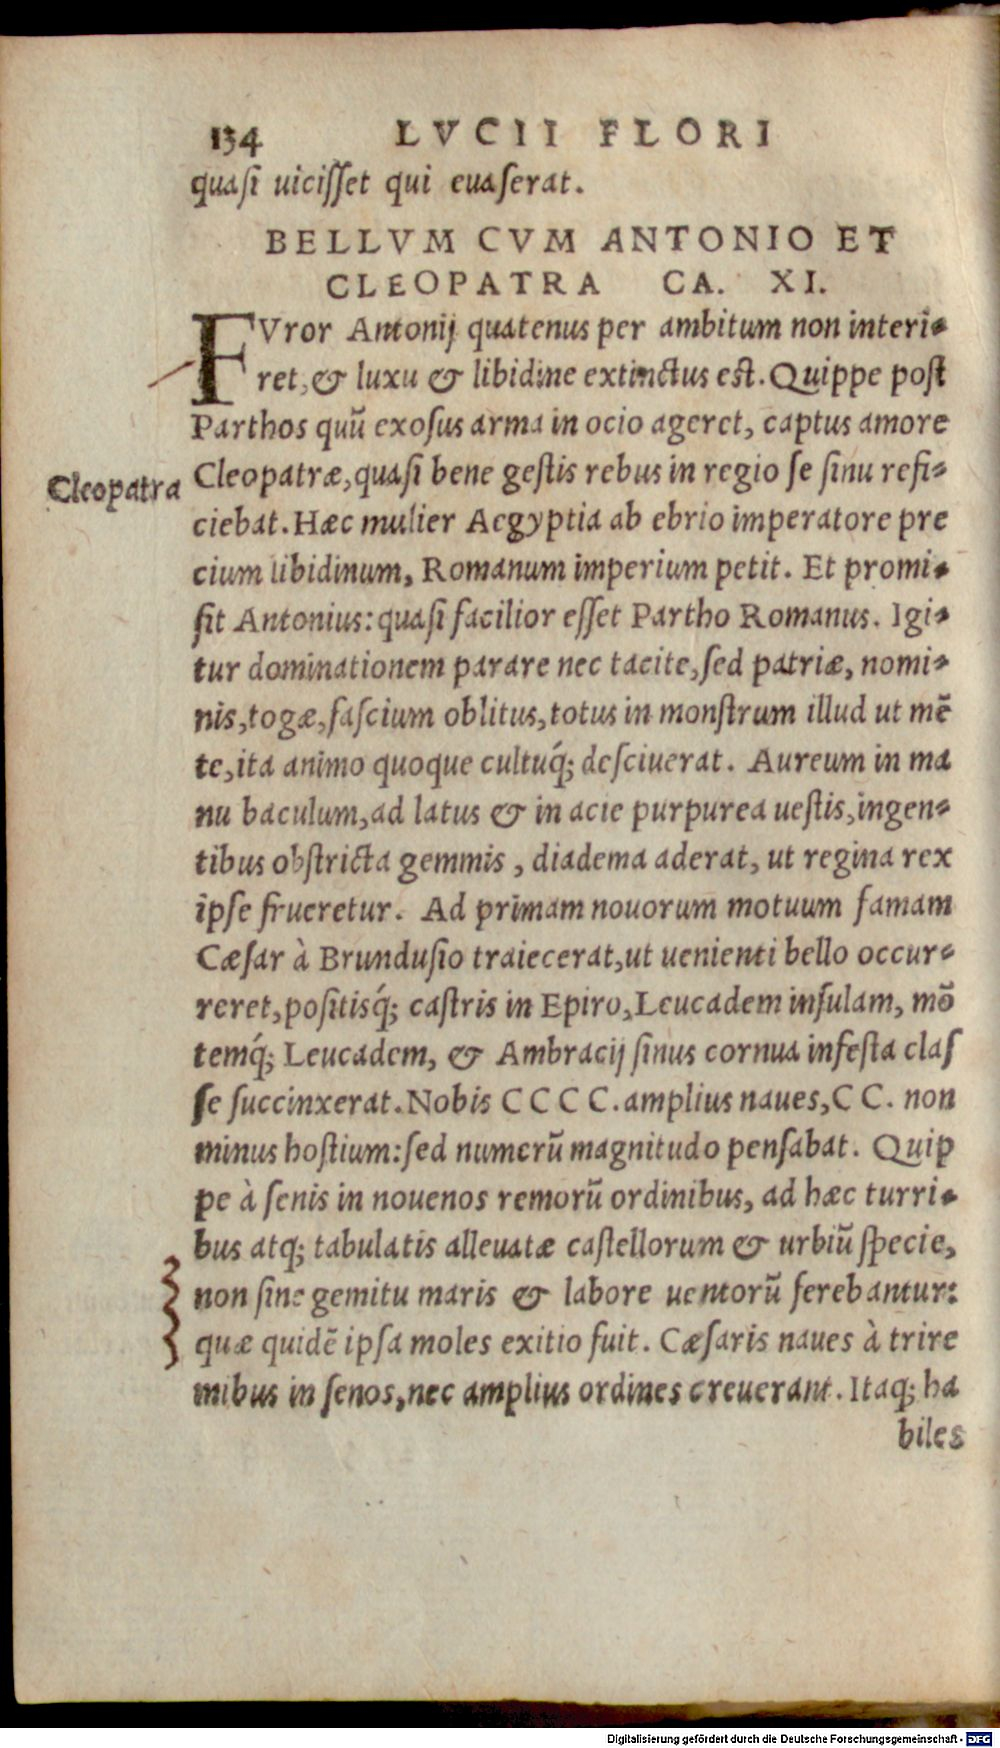 134 LVCII FLORI
quasi uicisset qui euaserat.
BELLVM CVM ANTONIO ET
CLEOPATRA CA. XI.
FVror Antonij quatenus per ambitum non interi-
ret, & luxu & libidine extinctus est. Quippe post
Parthos quũ exosus arma in ocio ageret, captus amore
Cleopatra
Cleopatræ, quasi bene gestis rebus in regio se sinu refi-
ciebat. Hæc mulier Aegyptia ab ebrio imperatore pre
cium libidinum, Romanum imperium petit. Et promi-
sit Antonius: quasi facilior esset Partho Romanus. Igi-
tur dominationem parare nec tacite, sed patriæ, nomi-
nis, togæ, fascium oblitus, totus in monstrum illud ut mẽ
te, ita animo quoque cultuq́; desciuerat. Aureum in ma
nu baculum, ad latus & in acie purpurea uestis, ingen-
tibus obstricta gemmis, diadema aderat, ut regina rex
ipse frueretur. Ad primam nouorum motuum famam
Cæsar à Brundusio traiecerat, ut uenienti bello occur-
reret, positisq́; castris in Epiro, Leucadem insulam, mõ
temq́; Leucadem, & Ambracij sinus cornua infesta clas
se succinxerat. Nobis CCCC. amplius naues, CC. non
minus hostium: sed numerũ magnitudo pensabat. Quip
pe à senis in nouenos remorũ ordinibus, ad hæc turri-
bus atq; tabulatis alleuatæ castellorum & urbiũ specie,
non sine gemitu maris & labore uentorũ ferebantur:
quæ quidẽ ipsa moles exitio fuit. Cæsaris naues à trire
mibus in senos, nec amplius ordines creuerant. Itaq; ha
biles
Digitalisierung gefördert durch die Deutsche Forschungsgemeinschaft - DFG